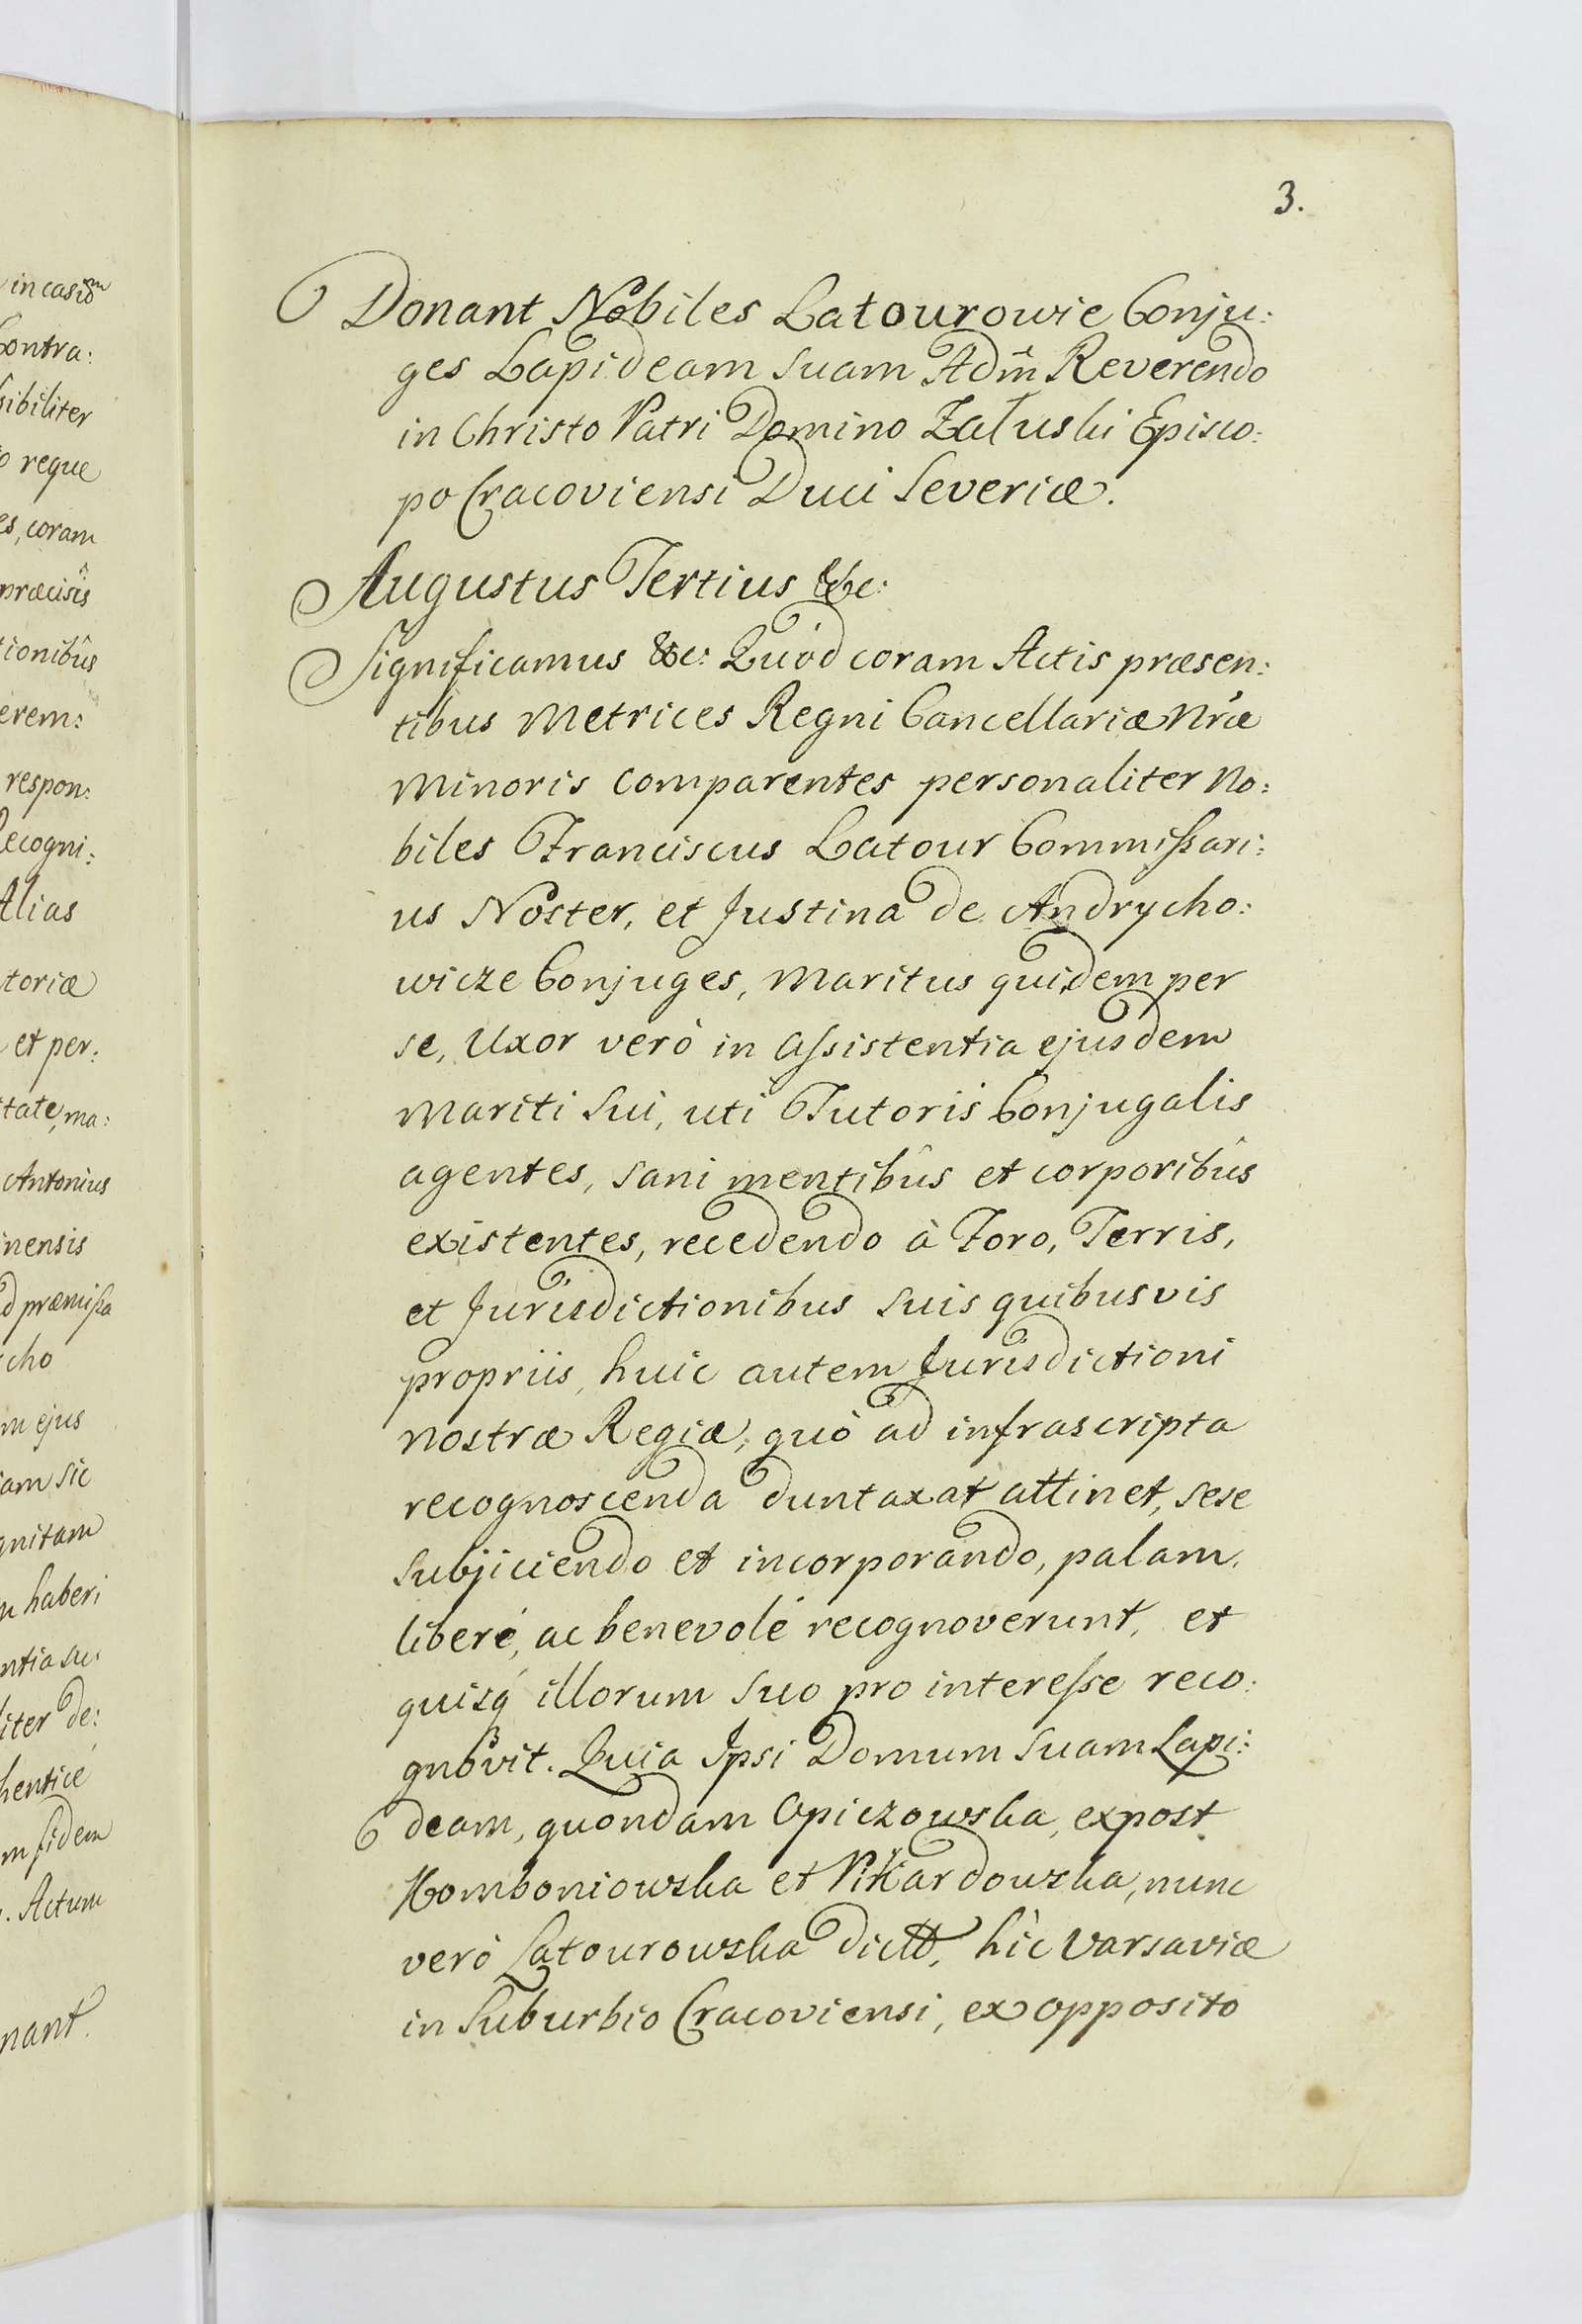 incasiom
Contra:
sibiliter
reque
es, coram
præcisîs
tionibûs
erem:
respon:
Recogni:
Alias
toriæ
et per:
tate, ma:
Antonius
nensis
d præmissa
cho
m ejus
am sic
gnitam
haberi
ntia su:
liter de:
henticè
m fidem
. Actum
nant.
3.
Donant Nobiles Latourowie Conju:
ges Lapideam suam Adm̃ Reverendo
in Christo Patri Domino Załuski Episco:
po Cracoviensi Duci Severiæ.
Augustus Tertius &c:
Significamus &c: Quòd coram Actis præsen:
tibus Metrices Regni Cancellariæ Nr̃æ
Minoris comparentes personaliter No:
biles Franciscus Latour Commissari:
us Noster, et Justina de Andrycho:
wicze Conjuges, Maritus quidem per
se, Uxor verò in assistentia ejusdem
Mariti sui, uti Tutoris Conjugalis
agentes, sani mentibûs et corporibûs
existentes, recedendo à Foro, Terris,
et Jurisdictionibus suis quibusvis
propriis, huic autem Jurisdictioni
nostræ Regiæ, quò ad infrascripta
recognoscenda duntaxat attinet, sese
subjiciendo et incorporando, palam,
liberé, ac benevolé recognoverunt, et
quisq́ illorum suo pro interesse reco:
gnovit. Quia Ipsi Domum suam Lapi:
deam, quondam Opiczowska, expost
Homboniowska et Pikardowska, nunc
verò Latourowska dictã, hìc Varsaviæ
in Suburbio Cracoviensi, ex opposito